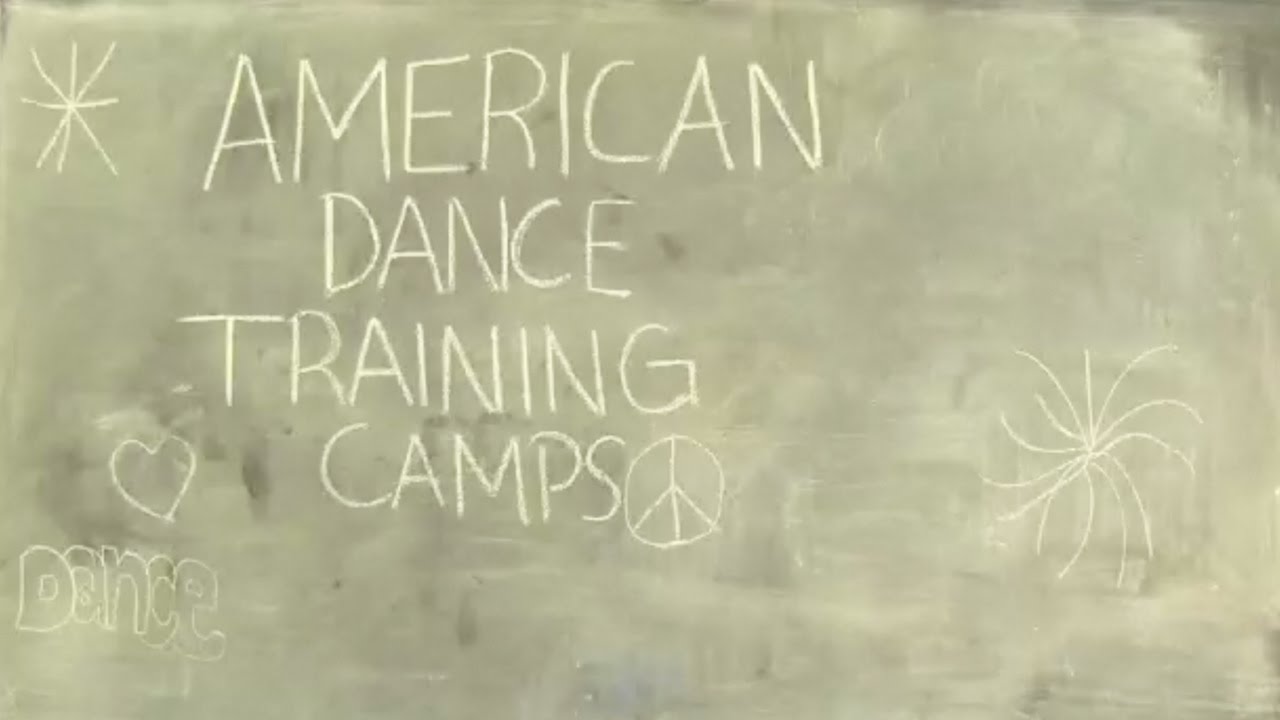 AMERICAN
DANCE
TRAINING
CAMPS
Dance